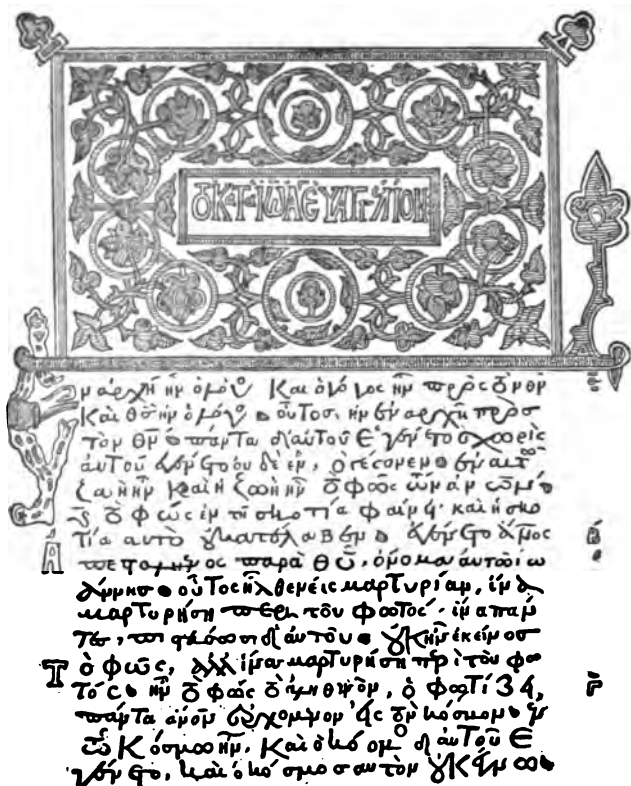 ΤὸΚΑΤᾺἸΩἍΓΕΥΑΓΓΈΛΙΟΝ
ν ἀρχῆ ἦν ὁ λόγος Καὶ ὁ λόγος ἦν πρὸς τὸν θν
Καὶ θς ἦν ὁ λόγος. οὗτος ἦν ἐν ἀρχῆ πρὸς
τὸν θν. πάντα δι αὐτοῦ Ἐγένετο. χωρὶς
αὐτοῦ ἐγένετο οὐδὲ ἓν, ὃ γέγονεν. ἐν αὐτῶ
ζωὴ ἦν καὶ ἡ ζωὴ ἦν τὸ φῶς τῶν ἀνων. καὶ
τὸ φῶς ἐν τῆ σκοτία φαίνει. καὶ ἡ σκο
τία αὐτὸ οὐ κατέλαβεν. ἐγένετο ἄνος
ἀπεσταλμένος παρὰ θυ, ὄνομα αὐτῶ ἰω
άννης. οὗτος ἦλθεν εἰς μαρτυρίαν, ἵνα
μαρτυρήση περὶ τοῦ φωτός. ἵνα πάν
τες, πιστεύσωσι δι αὐτοῦ. οὐκ ἦν ἐκεῖνος
Τὸ φῶς, ἀλλ ἵνα μαρτυρήση περὶ τοῦ φω
τός. ἦν τὸ φῶς τὸ ἀληθινὸν, ὃ φωτίζει,
πάντα ἄνον ἐρχόμενον εἰς τὸν κόσμον. ἐν
τῶ Κόσμω ἦν. Καὶ ὁ κόσμος δι αὐτοῦ Ἐ
γένετο. καὶ ὁ κόσμος αὐτὸν οὐκ ἔγνω.